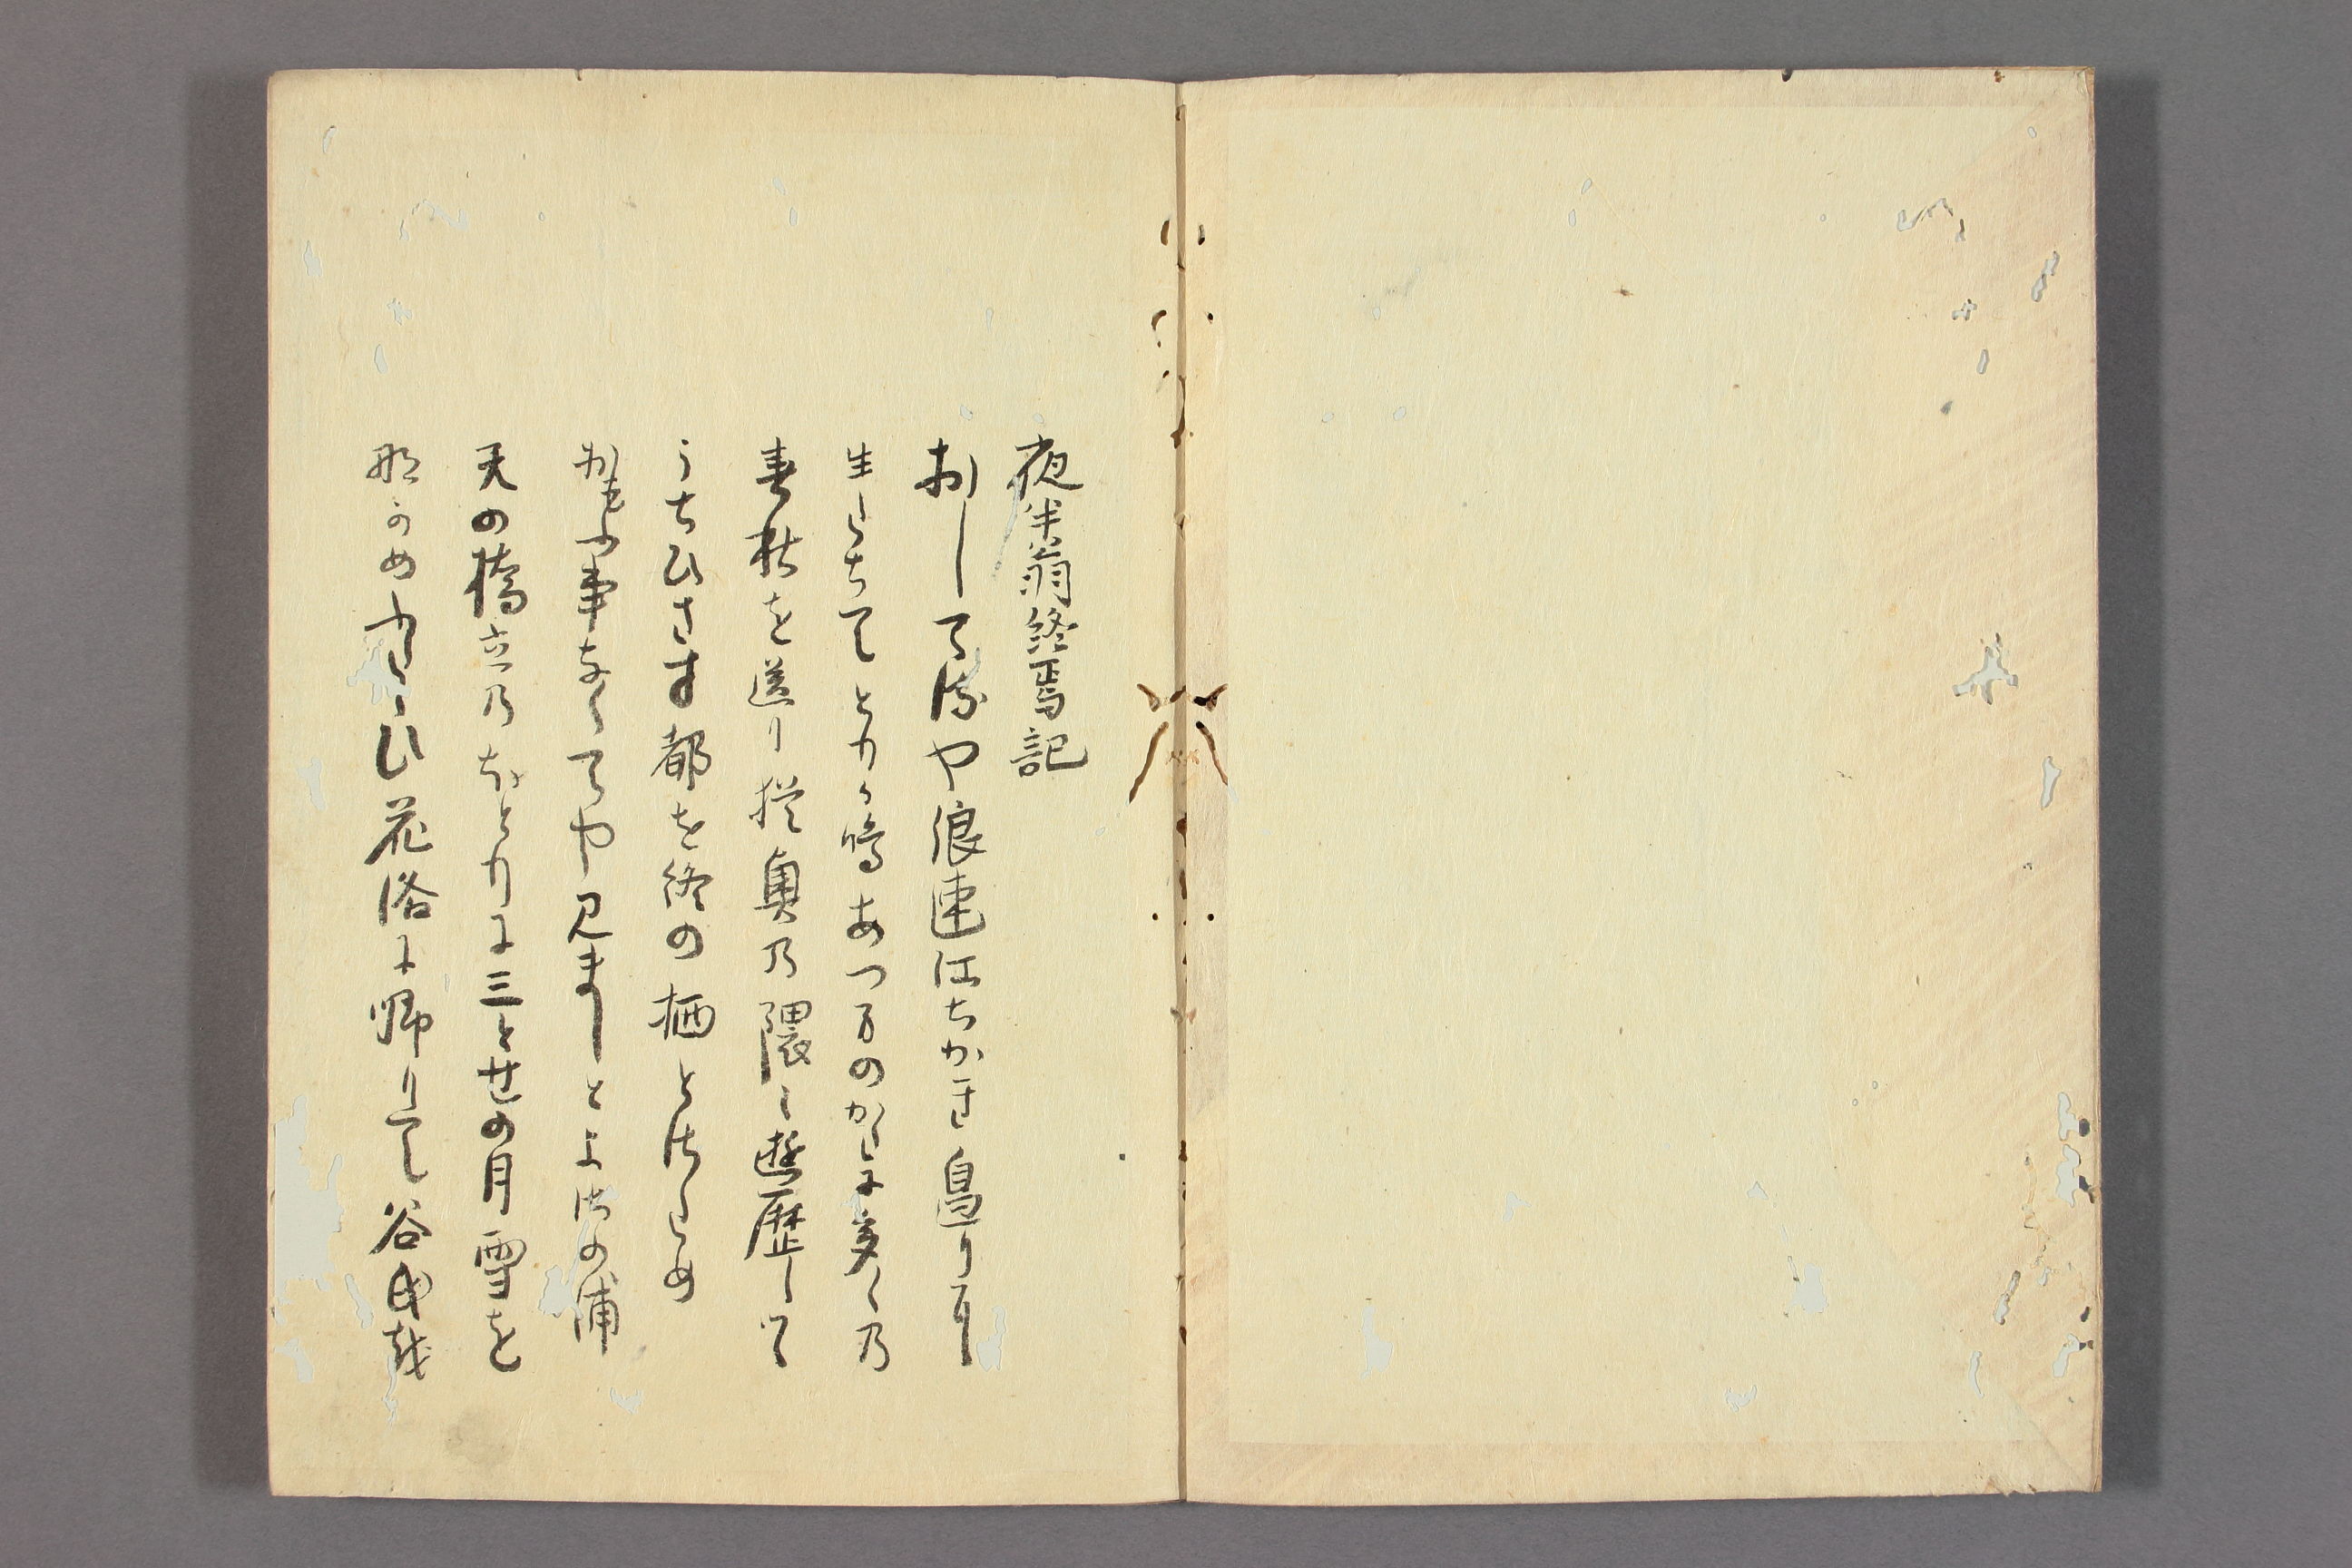 夜半翁終焉記
おしてるや浪速江ちかき邊りに
生たちてとりか鳴あつまのかたに多くの
春秋を送り猶奥の隈々遊歴して
うちひさす都を終の栖とさため
おもふ事なくてや見ましとよさの浦
天の橋立のほとりに三とせの月雪を
なかめ
ひ花洛に帰りて谷氏或